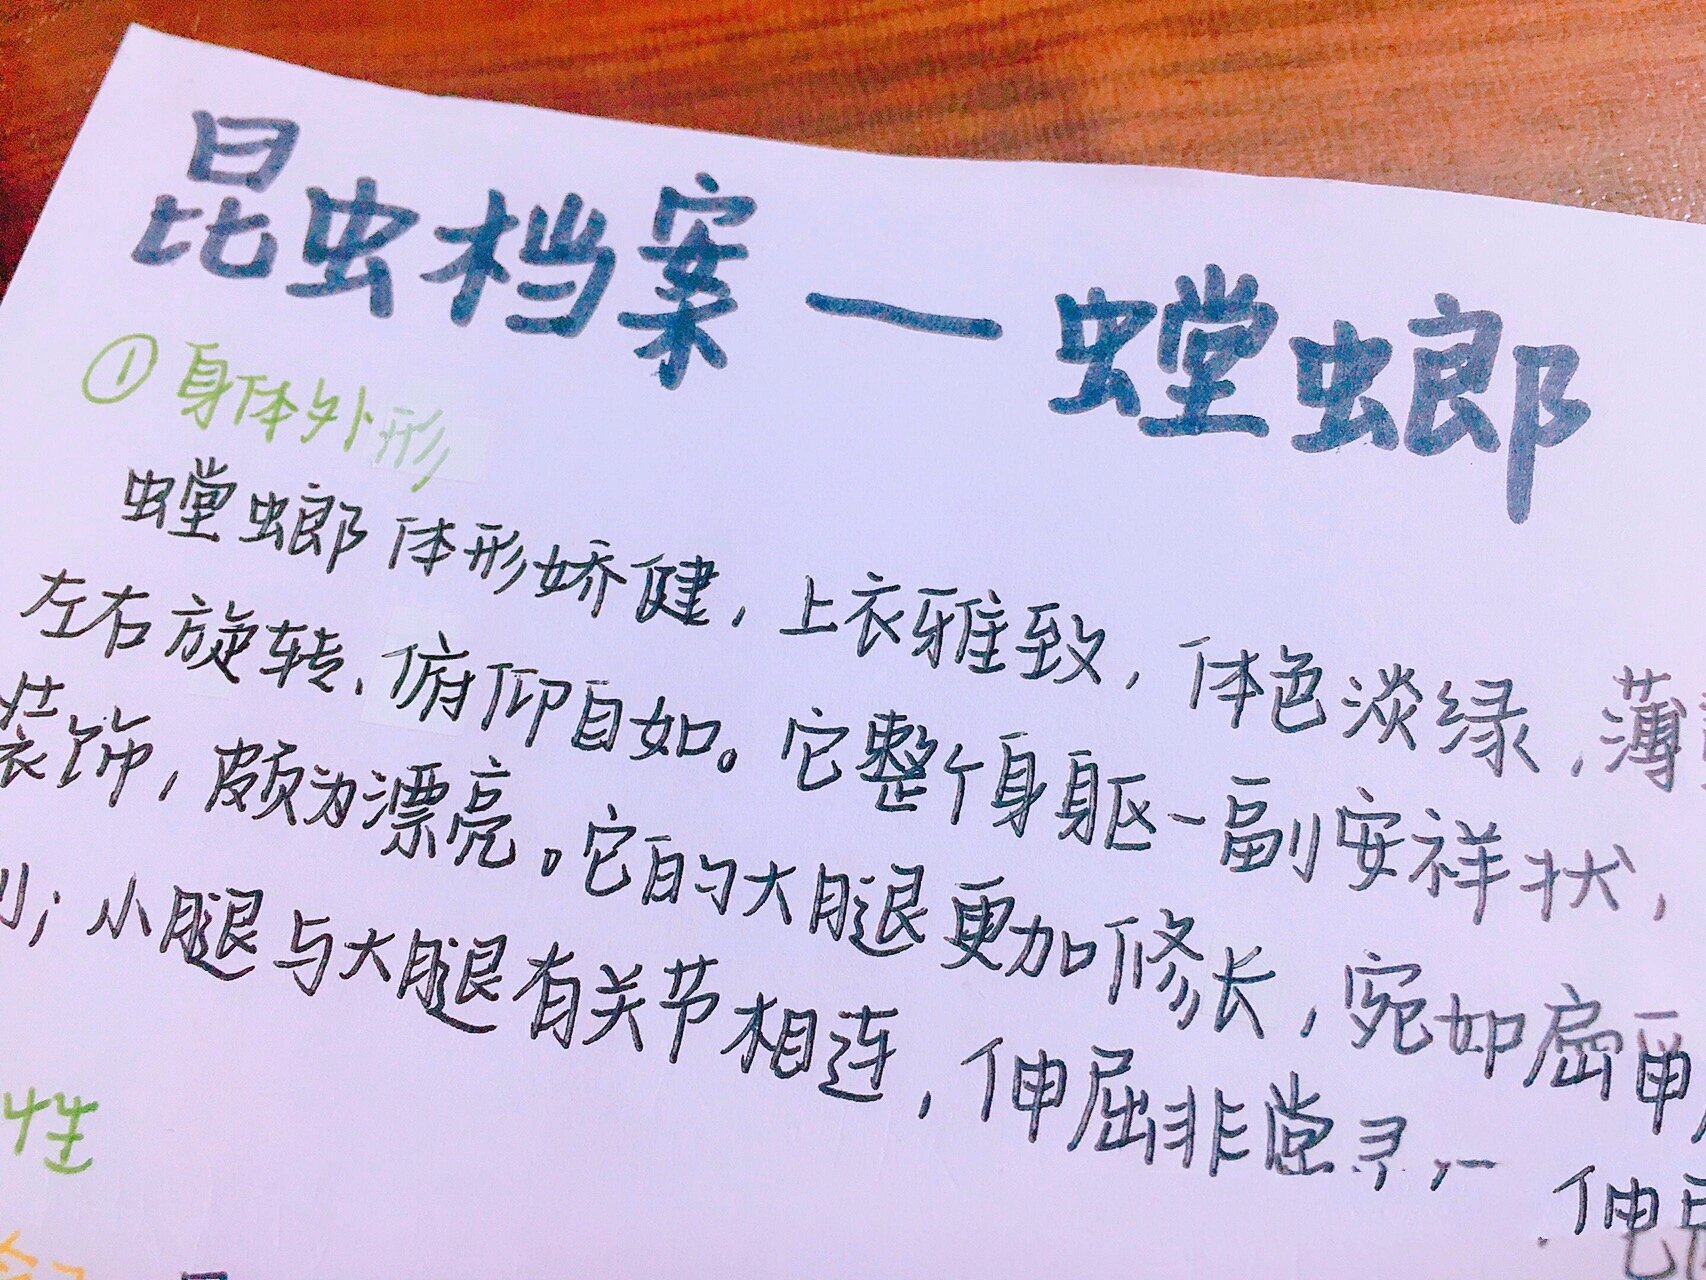 昆虫档案—螳螂
①身体外形
螳螂体形娇健，上衣雅致，体色淡绿，薄
左右旋转、俯仰自如。它整个身躯一副安祥状，
装饰，颇为漂亮。它的大腿更加修长，宛如
小腿与大腿有关节相连，伸屈非常
性